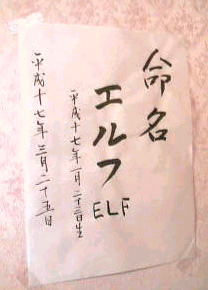 命名
エルフ
ELF
平成十七年一月二十三日生
平成十七年三月二十五日